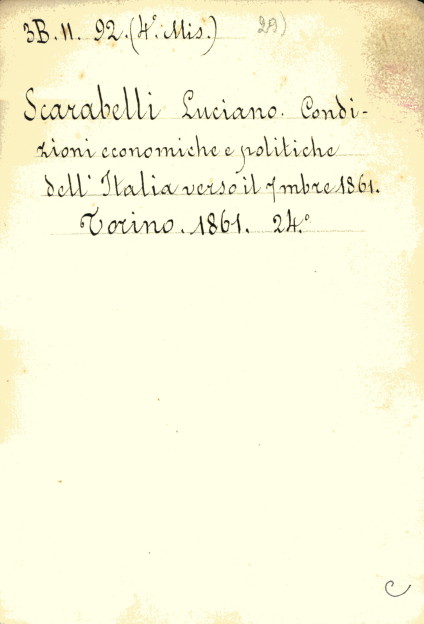 3B. 11. 92. (4.° Mis.) 29)
Scarabelli Luciano. Condi-
zioni economiche e politiche
dell' Italia verso il 7mbre 1861.
Torino. 1861. 24.°
C